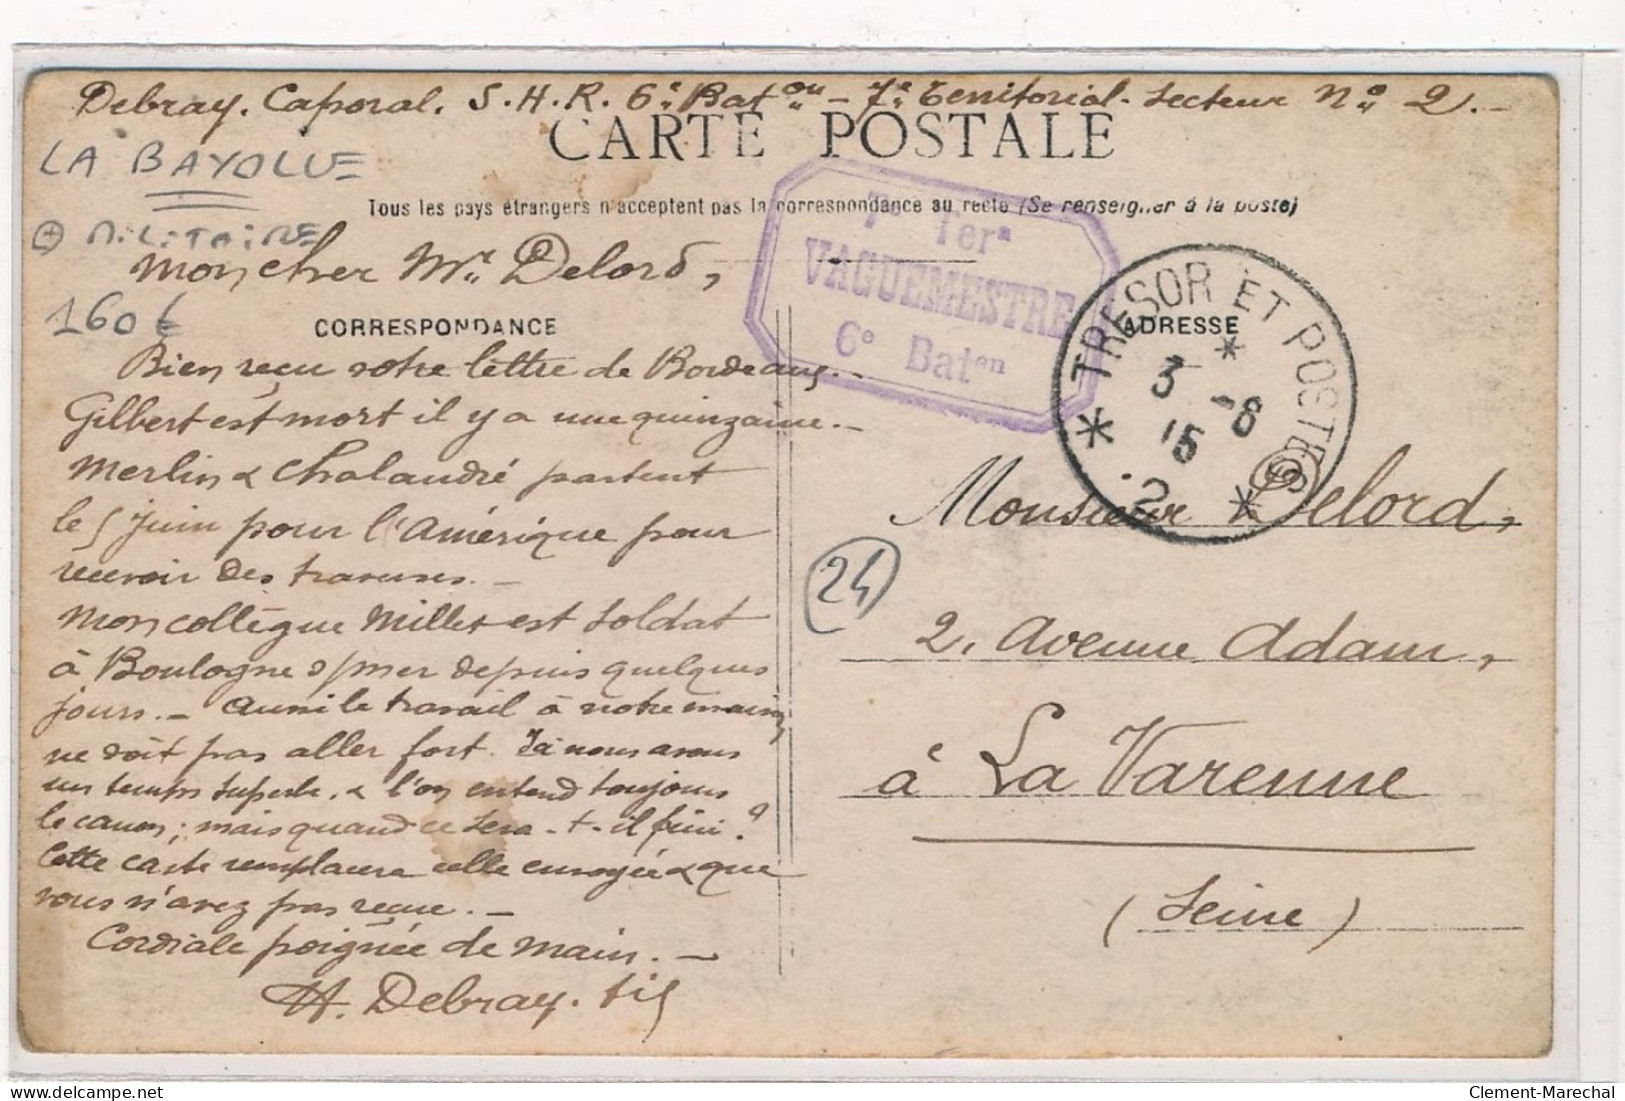 Debray. Caporal. S. H. R. 6e. Baton – 7e. Territorial. Secteur No 2. –
CARTE POSTALE
LA BAYOLLE
Tous les pays étrangers n'acceptent pas la correspondance au recto (Se renseigner à la poste)
+ MILITAIRE
7e Terral
VAGUEMESTRE
6e Baton
Mon cher Mr. Delord,
160 €
CORRESPONDANCE
ADRESSE
TRESOR ET POSTES
3 -8
15
2
Bien reçu votre lettre de Bordeaux. –
Gilbert est mort il y a une quinzaine. –
Merlin & Chalandré partent
le 5 Juin pour l'Amérique pour
recevoir des traverses. –
Mon collègue Millet est soldat
à Boulogne s/mer depuis quelques
jours. – Aussi le travail à notre
ne doit pas aller fort. Ici nous avons
un temps superbe, & l'on entend toujours
le canon ; mais quand ce sera-t-il fini ?
Cette carte remplacera celle envoyée & que
vous n'avez pas reçue. –
Cordiale poignée de main. –
H. Debray. fils
Monsieur Delord,
24
2, Avenue Adam,
à La Varenne
(Seine)
Clement-Marechal